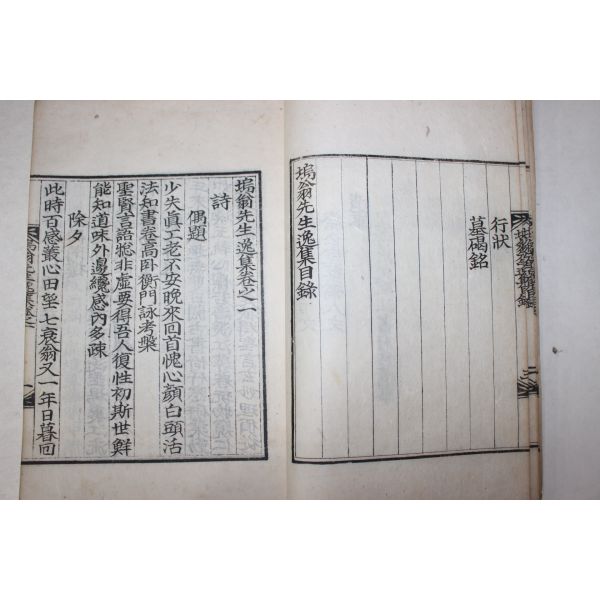 行狀
墓碣銘
塢翁先生逸集目錄
塢翁先生逸集卷之一
詩
偶題
少失眞工老不安晚來回首愧心顔白頭活
法知書卷高卧衡門詠考槃
聖賢言語豈非虛要得吾人復性初斯世鮮
能知道味外邊纔感內多疎
除夕
此時百感叢心田堅七衰翁又一年日暮回